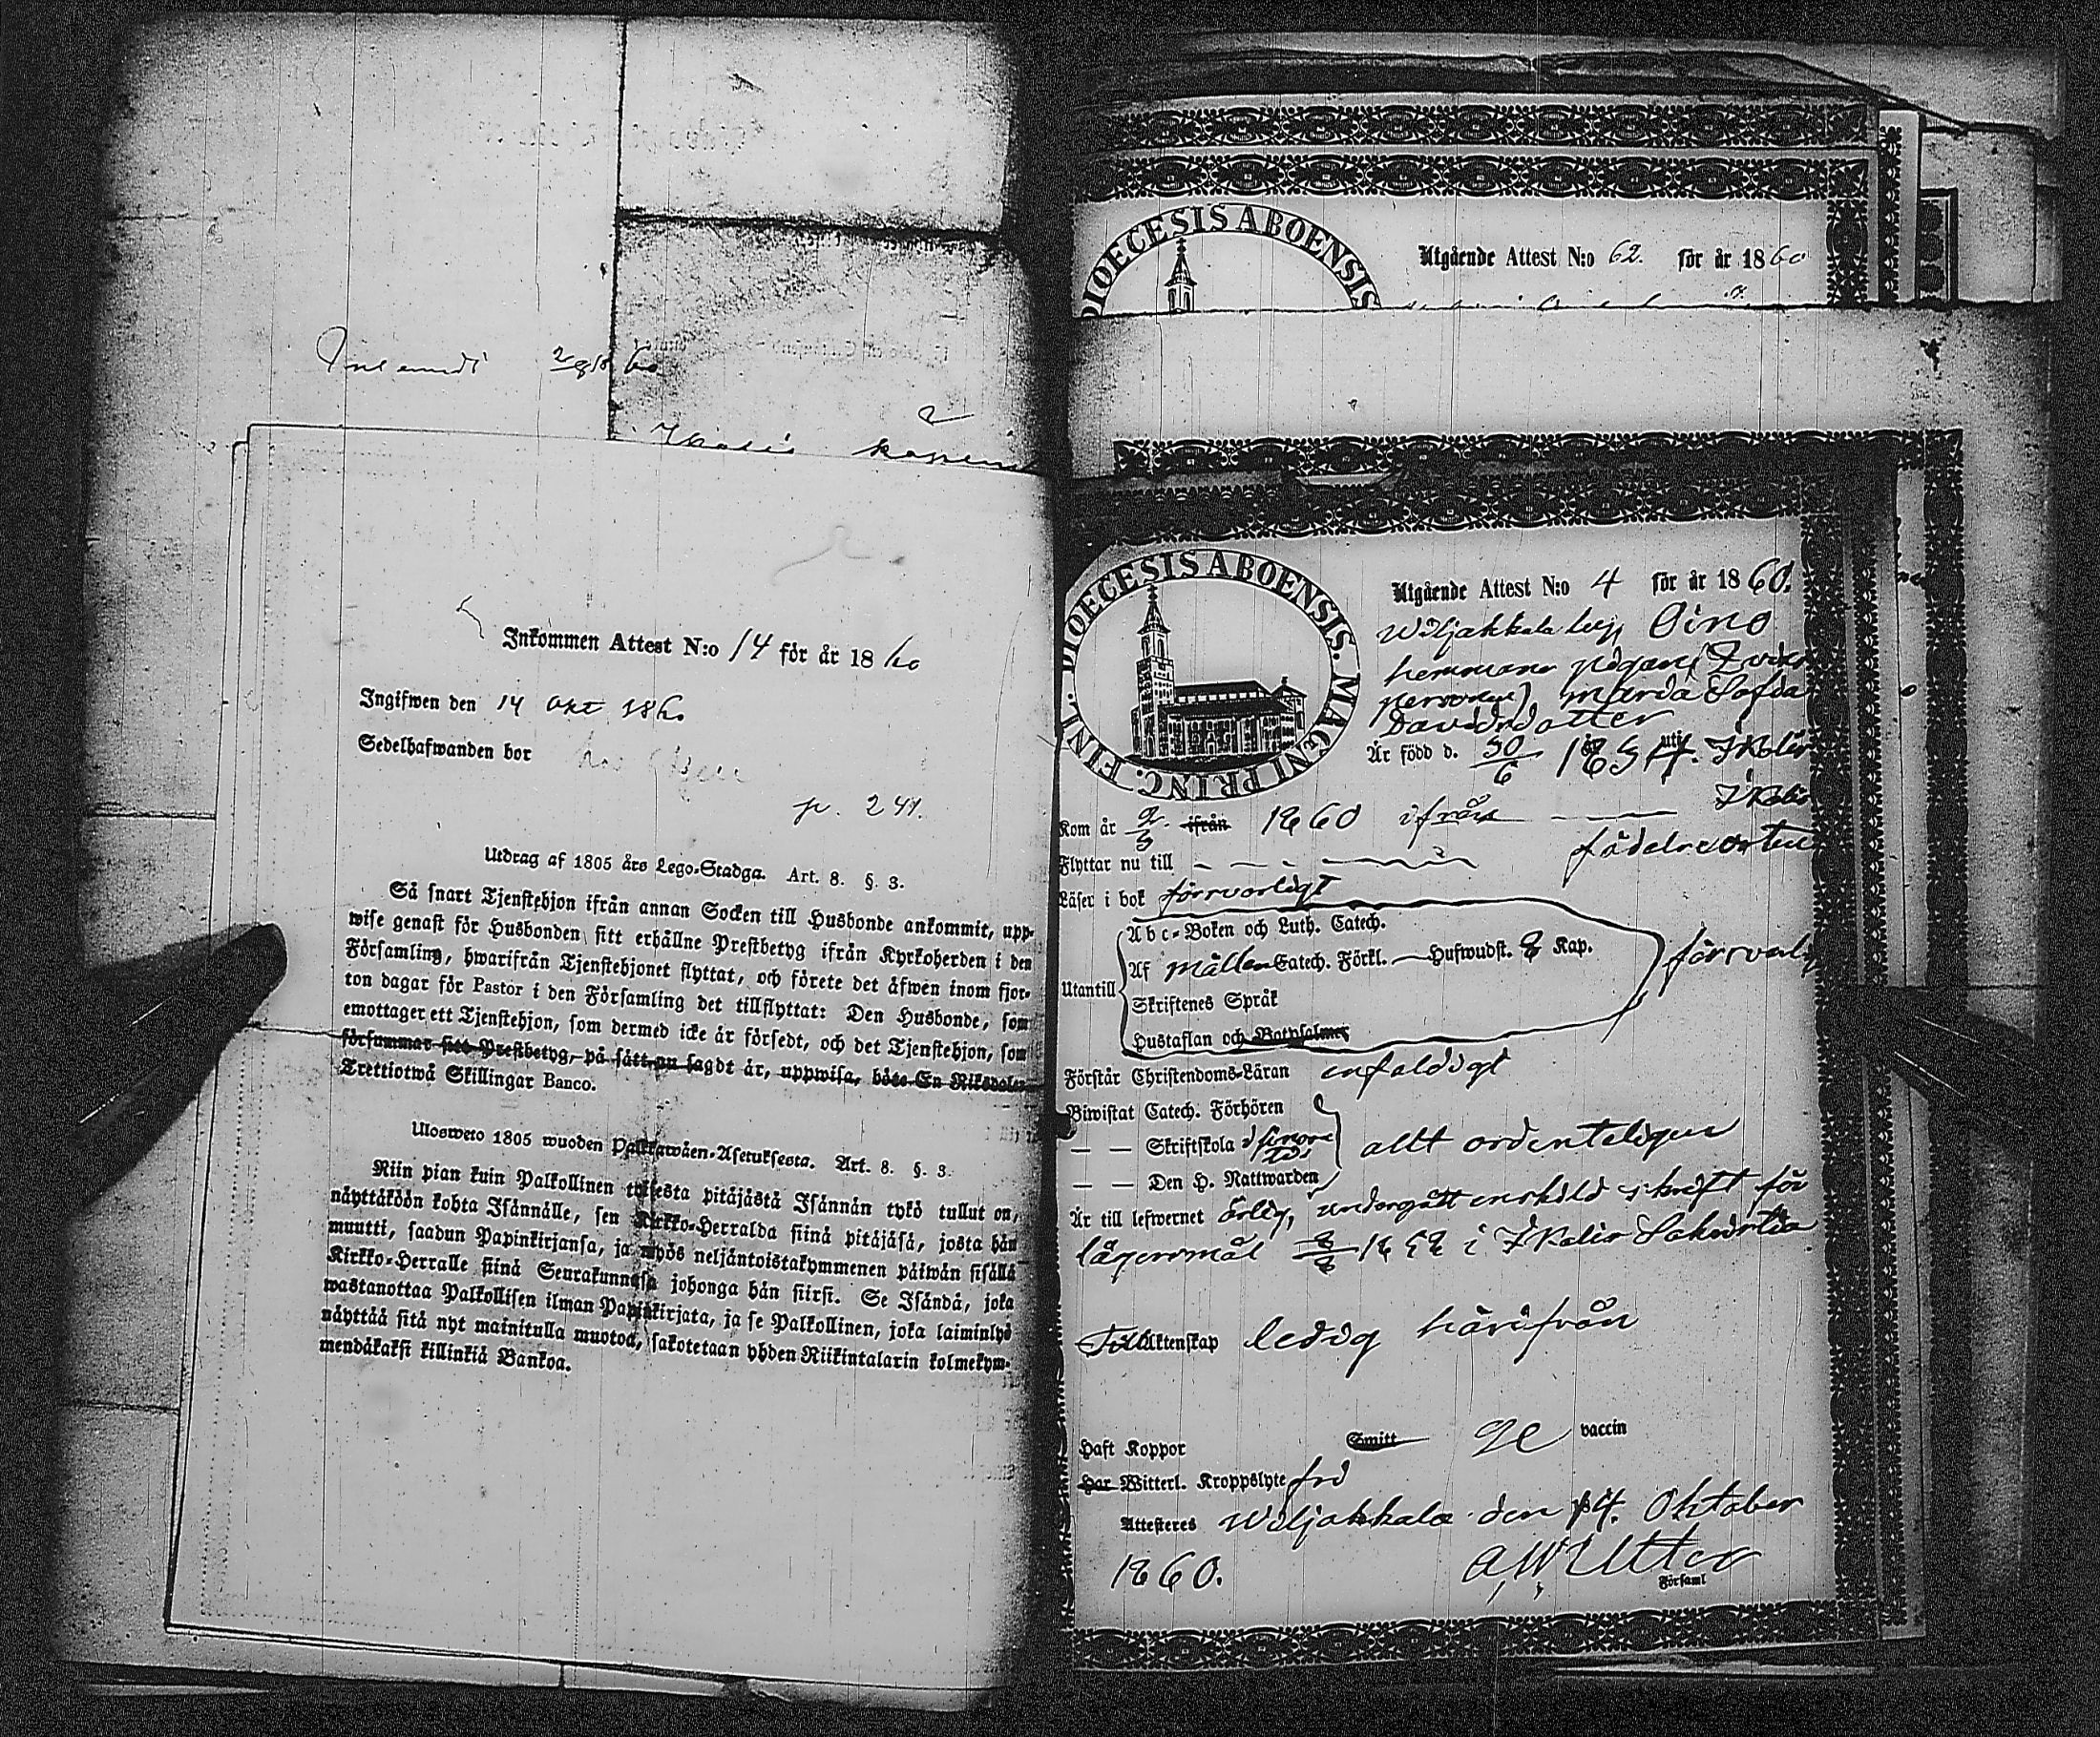 Inkommen Attest N:o 14 för år 1860
Ingifwen den 14 Okt 1860
Sedelhafwanden bor
p. 241.
Utdrag af 1805 års Lego-Stadga. Art. 8. §. 3.
Så snart Tjenstehjon ifrån annan Socken till Husbonde ankommit, upp-
wise genast för Husbonden sitt erhållne Prestbetyg ifrån Kyrkoherden i den
Församling, hwarifrån Tjenstehjonet flyttat, och förete det äfwen inom fjor-
ton dagar för Pastor i den Församling det tillflyttat: Den Husbonde, som
emottager ett Tjenstehjon, som dermed icke är försedt, och det Tjenstehjon, som
försummar sitt Prestbetyg, på sätt nu sagdt är, uppwisa, böte En Riksdaler
Trettiotwå Skillingar Banco.
Ulosweto 1805 wuoden Palkkawäen-Asetuksesta. Art. 8. §. 3.
Niin pian kuin Palkollinen toisesta pitäjästä Isännän tykö tullut on,
näyttäköön kohta Isännälle, sen Kirkko-Herralda siinä pitäjäsä, josta hän
muutti, saadun Papinkirjansa, ja myös neljäntoistakymmenen päiwän sisällä
Kirkko-Herralle siinä Seurakunnasa johonga hän siirsi. Se Isändä, joka
wastanottaa Palkollisen ilman Papinkirjata, ja se Palkollinen, joka laiminlyö
näyttää sitä nyt mainitulla muotoa, sakotetaan yhden Riikintalarin kolmekym-
mendäkaksi killinkiä Bankoa.
DIOECESIS ABOENSIS
Utgående Attest N:o 62. för år 1860
DIOECESIS ABOENSIS. MAGNI PRINC. FINL.
Utgående Attest N:o 4 för år 1860.
Wiljakkala by, Oino
hemmans pigan
Maria Sofia
Davidsdotter
Är född d. 30/6 18 uti Ikalis
Ikalis
Kom år ifrån 1860 ifrån
Flyttar nu till födelseorten
Läser i bok försvarligt
Utantill
Abc-Boken och Luth. Catech.
Af Mallen Catech. Förkl. — Hufwudst. 8 Kap. försvarlig
Skriftenes Språk
Hustaflan och Botpsalmer
Förstår Christendoms-Läran enfaldigt
Biwistat Catech. Förhören
— — Skriftskola
— — Den H. Nattwarden
allt ordenteligen
Är till lefwernet ärlig, undergått enskild skrift för
lägersmål i Ikalis
Till Äktenskap ledig härifrån
Haft Koppor Smitt vaccin
Har Witterl. Kroppslyte fri
Attesteres Wiljakkala den 14. Oktober
1860.
Församl